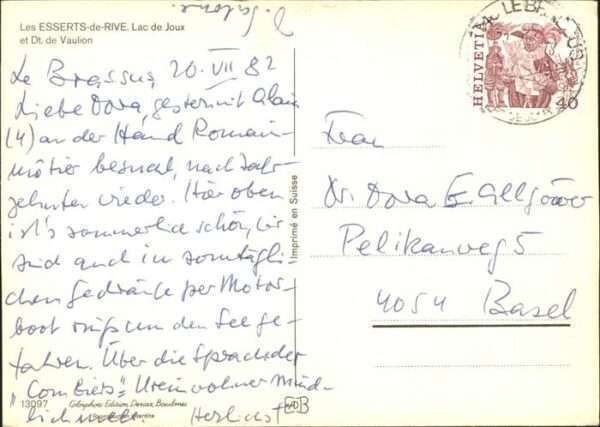 Les ESSERTS-de-RIVE, Lac de Joux
et Dt. de Vaulion
Le Brassus, 20. VII 82
Liebe Dora, gestern mit Alain
(4) an der Hand Romain-
môtier besucht, nach Jahr-
zehnten wieder. Hier oben
ist's sommerlich schön, wir
sind auch im sonntägli-
chen Gedränge per Motor-
boot rings um den See ge-
fahren. Über die Sprache der
"Combiers":
lich
Herzlichst
13097
Imprimé en Suisse
LE BRASSUS
HELVETIA
40
Frau
Dr. Dora E. Allgöwer
Pelikanweg 5
4054 Basel